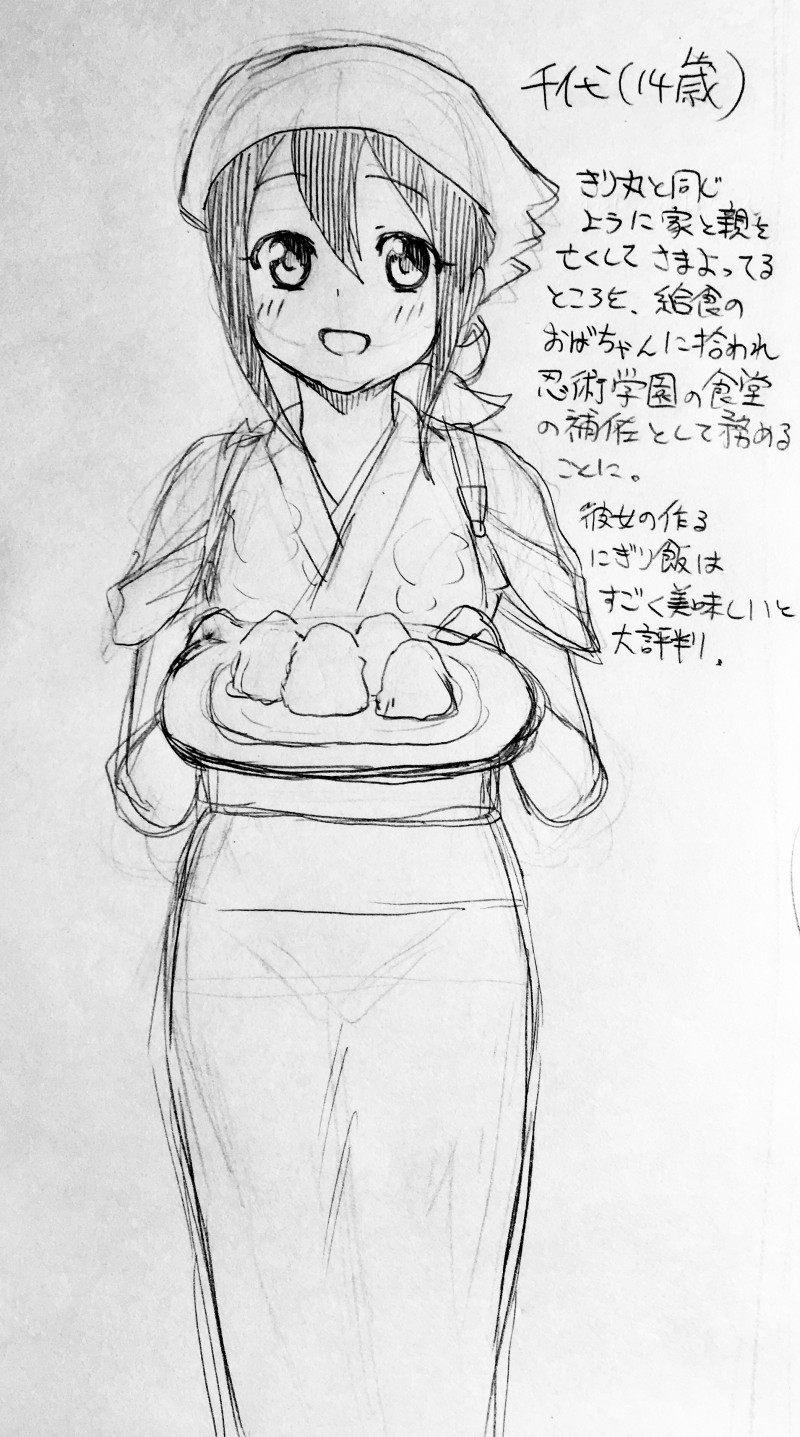 千代(14歳)
きり丸と同じ
ように家と親を
亡くしてさまよってる
ところを、給食の
おばちゃんに拾われ
忍術学園の食堂
の補佐として務める
ことに。
彼女の作る
にぎり飯は
すごく美味しいと
大評判。